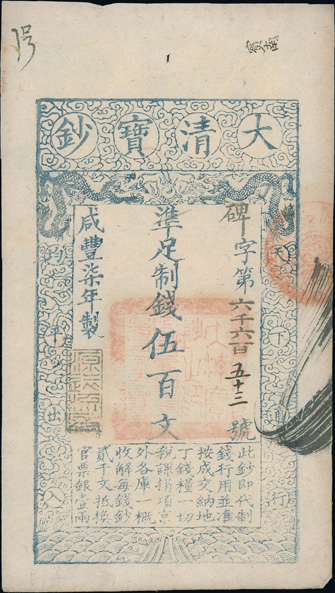 大清寶鈔
天下通行
碑字第六千六百五十三號
準足制錢伍百文
咸豐柒年製
均平出入
此鈔即代制
錢行用並准
按成交納地
丁錢糧一切
稅課捐項京
外各庫一概
收解每錢鈔
貳千文抵換
官票銀壹兩